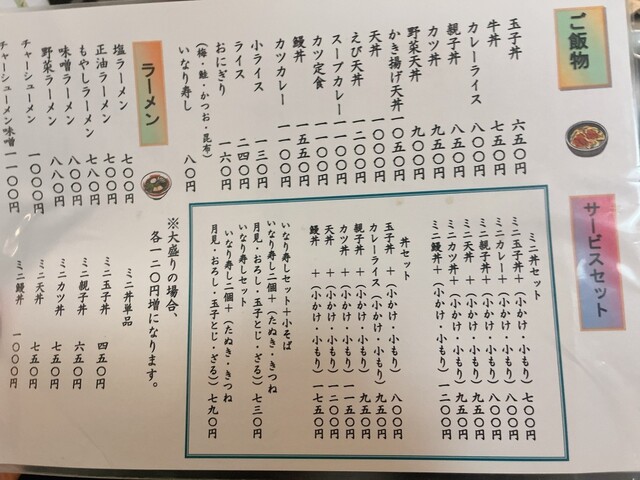 ご飯物
玉子丼 六五〇円
牛丼 七五〇円
カレーライス 八〇〇円
親子丼 八五〇円
カツ丼 九五〇円
野菜天丼 九〇〇円
かき揚げ天丼 一〇五〇円
天丼 一〇〇〇円
えび天丼 一二〇〇円
スープカレー 一一〇〇円
カツ定食 一一〇〇円
鰻丼 一五五〇円
カツカレー 一一〇〇円
小ライス 一三〇円
ライス 二四〇円
おにぎり 一六〇円
(梅・鮭・かつお・昆布)
いなり寿し 八〇円
ラーメン
塩ラーメン 七〇〇円
正油ラーメン 七〇〇円
もやしラーメン 七八〇円
味噌ラーメン 八〇〇円
野菜ラーメン 八八〇円
チャーシューメン 一〇〇〇円
チャーシューメン味噌 一一〇〇円
サービスセット
ミニ丼セット
ミニ玉子丼+(小かけ・小もり) 七〇〇円
ミニカレー+(小かけ・小もり) 八〇〇円
ミニ親子丼+(小かけ・小もり) 八〇〇円
ミニ天丼+(小かけ・小もり) 九五〇円
ミニカツ丼+(小かけ・小もり) 九五〇円
ミニ鰻丼+(小かけ・小もり) 一二〇〇円
丼セット
玉子丼 +(小かけ・小もり) 八〇〇円
カレーライス(小かけ・小もり) 九五〇円
親子丼 +(小かけ・小もり) 九五〇円
カツ丼 +(小かけ・小もり) 一一五〇円
天丼 +(小かけ・小もり) 一二〇〇円
鰻丼 +(小かけ・小もり) 一七五〇円
いなり寿しセット+小そば
いなり寿し二個+(たぬき・きつね
月見・おろし・玉子とじ・ざる) 七三〇円
いなり寿しセット
いなり寿し二個+(たぬき・きつね
月見・おろし・玉子とじ・ざる) 七九〇円
※大盛りの場合、
各一二〇円増になります。
ミニ丼単品
ミニ玉子丼 四五〇円
ミニ親子丼 六五〇円
ミニカツ丼 七五〇円
ミニ天丼 七五〇円
ミニ鰻丼 一〇〇〇円